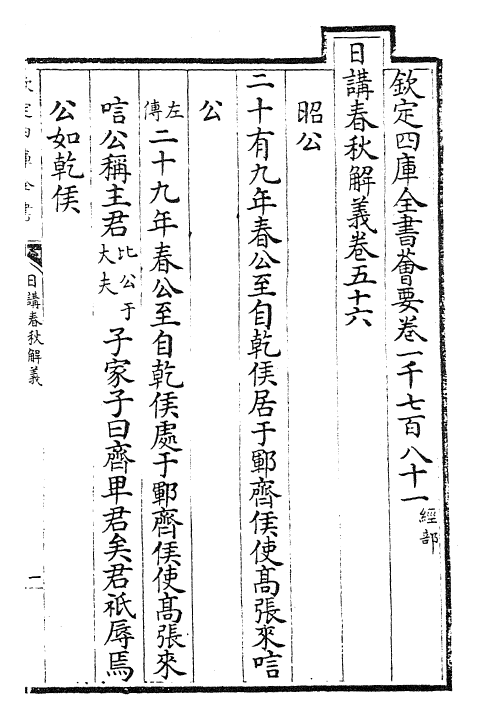 欽定四庫全書薈要卷一千七百八十一經部
日講春秋解義卷五十六
昭公
二十有九年春公至自乾侯居于鄆齊侯使髙張來唁
公
左傳二十九年春公至自乾侯處于鄆齊侯使髙張來
唁公稱主君比公于大夫子家子曰齊卑君矣君祗辱焉
公如乾侯
欽定四庫全書
日講春秋解義
一